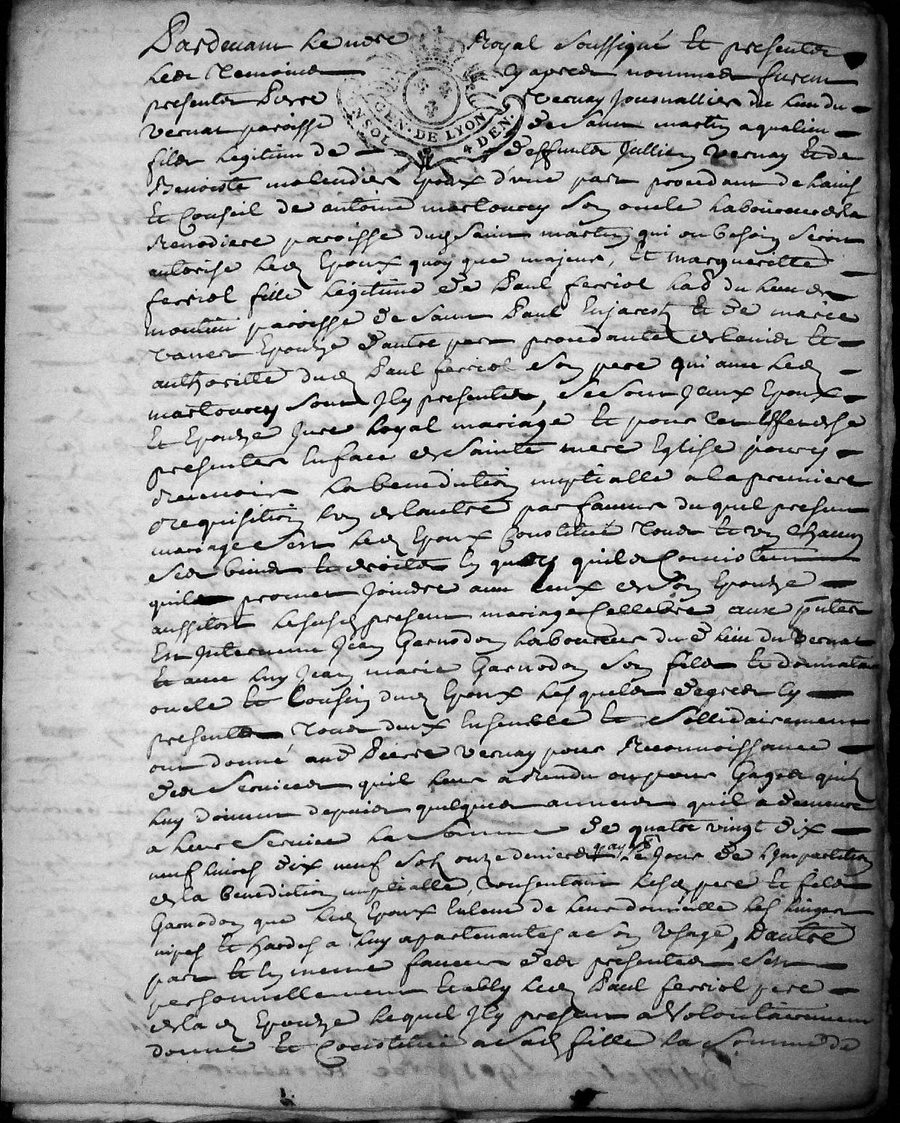 Pardevant le nore Royal soussigné Et presenter
les Temoins Cy apres nommes furent
present Pierre Vernay Journallier du lieu du
GEN. DE LYON
UN SOL 4 DEN.
Vernat paroisse de saint martin
fils legitime de deffunts Jullien Vernay Et de
Benoiste malendier Epoux d'une part procedant de
Et Conseil de antoine marloucey son oncle laboureur de la
Renodiere paroisse dud Saint martin qui au besoin seroit
autorise led Epoux quoy que majeur, Et margueritte
ferriol fille legitime de Paul ferriol lab du lieu de
moulin paroisse de saint Paul Enjarest Et de marie
Epouze d'autre part procedante de lavis Et
authoritté dud Paul ferriol son pere qui avec led
marloucey sont Icy presenter, se sont Iceux Epoux
Et Epouze Jure loyal mariage Et pour cet Effet de se
presenter En face de Sainte mere Eglise pour y
recevoir la benediction nuptialle a la premiere
requisition lun de lautre par faveur du quel present
mariage s'est led Epoux Constitué tous Et un chacun
ses biens Et droits En quoy quils Consistent
quil promet joindre avec ceux de son Epouze
aussitost le susd present mariage Cellebré, aux
Est Intervenu Jean Garnodon laboureur dud lieu du Vernat
Et avec luy Jean marie Garnodon son fils Et donnataire
oncle Et Cousin dud Epoux lesquels de gres Icy
presenter Tous deux Ensemble Et sollidairement
ont donné aud Pierre Vernay pour Reconnoissance
des services quil leur a Rendu ou pour Gages quils
luy doivent depuis quelques années quil a demeuré
a leur service la somme de quatre vingt dix
neuf livres dix neuf sols onze deniers payable le jour de
de la benediction nuptialle, Consentant lesd pere Et fils
Garnodon que led Epoux Enleve de leur domicille les linges
nipes Et hardes a luy apartenantes a son usage, D'autre
part Et En meme faveur des presenter s'est
personnellement Etably led Paul ferriol pere
de la d Epouze lequel Icy present a Volontairement
donné Et Constitué a sad fille la somme de